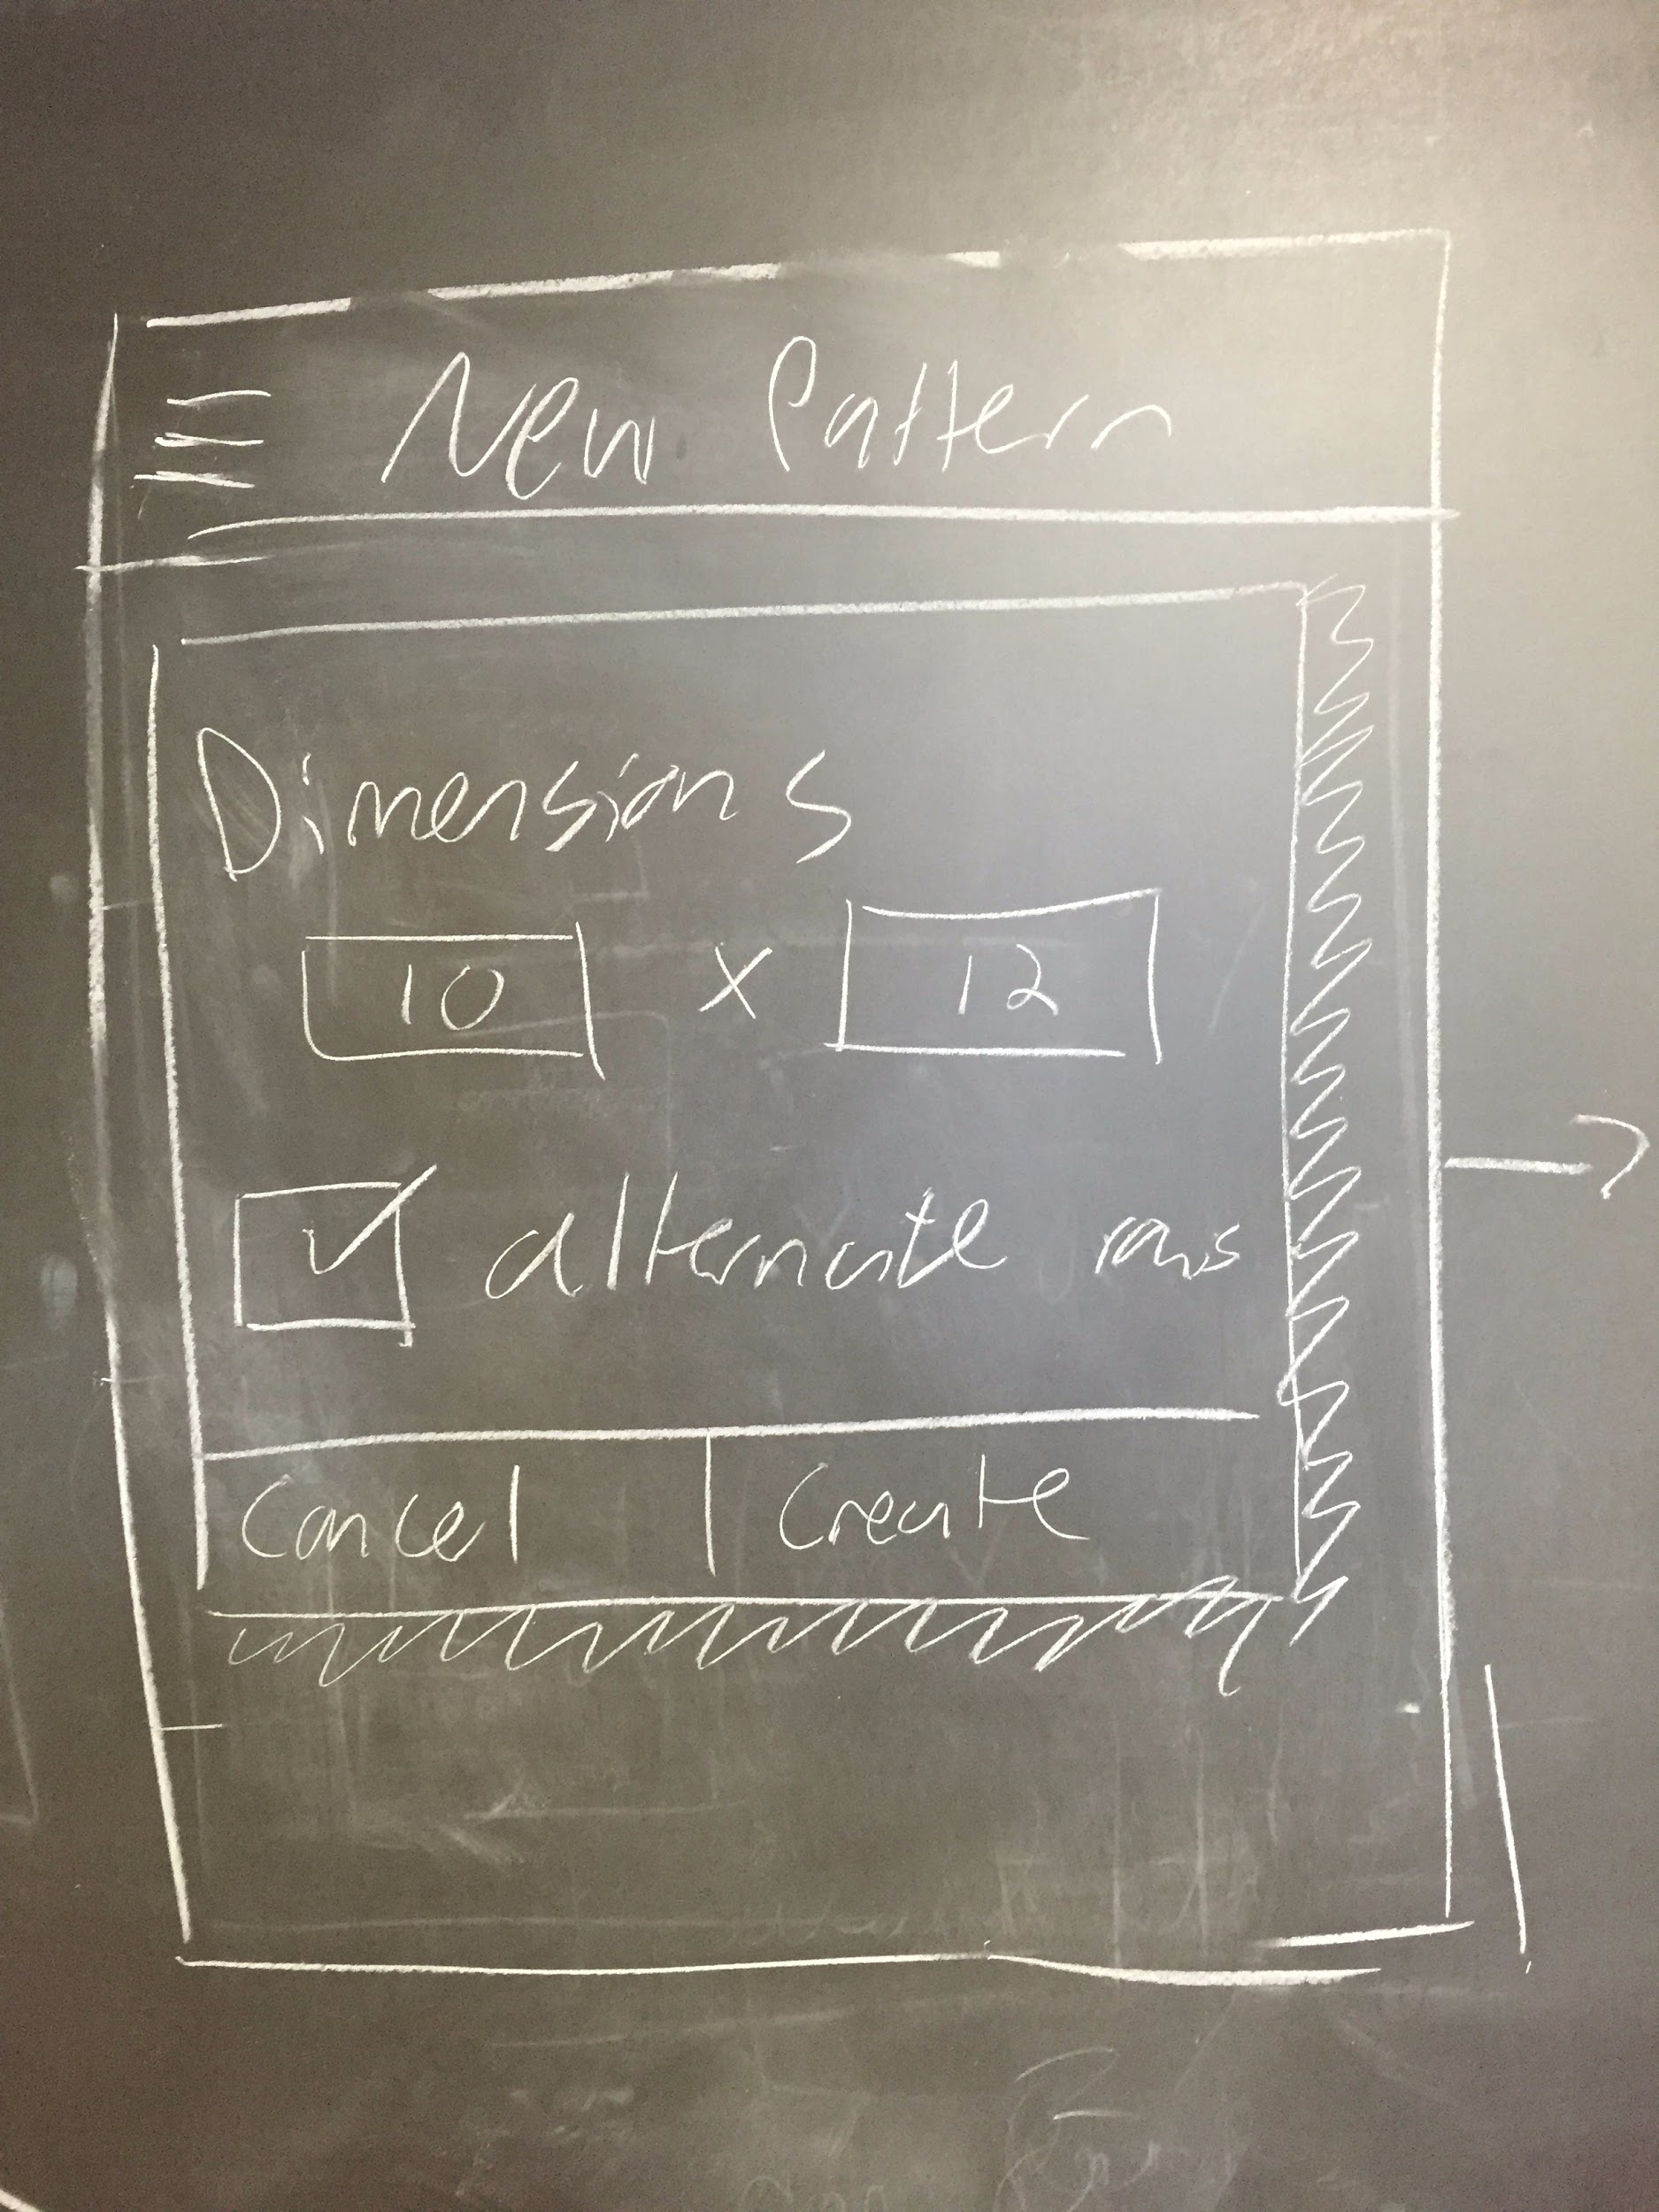 New Pattern
Dimensions
10 x 12
alternate rows
Cancel Create